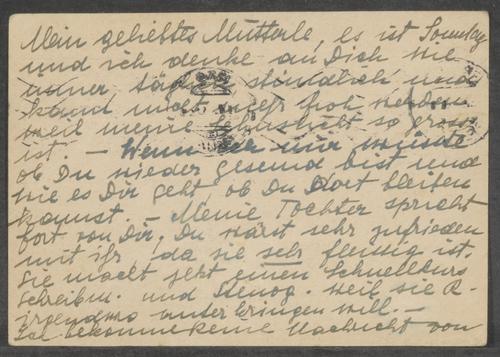 Mein geliebtes Mutterle, es ist Sonntag
und ich denke an Dich wie
immer tägl. stündlich und
kann nicht mehr froh werden
weil meine Sehnsucht so gross
ist. — Wenn ich nur wüsste
ob Du wieder gesund bist und
wie es Dir geht ob Du Dort bleiben
kannst. — Meine Tochter spricht
fort von Dir, Du wärst sehr zufrieden
mit ihr, da sie sehr fleissig ist.
Sie macht jetzt einen Schnellkurs
Schreibm. und Stenog. weil sie R-
irgendwo unterbringen will. —
bekomme keine Nachricht von